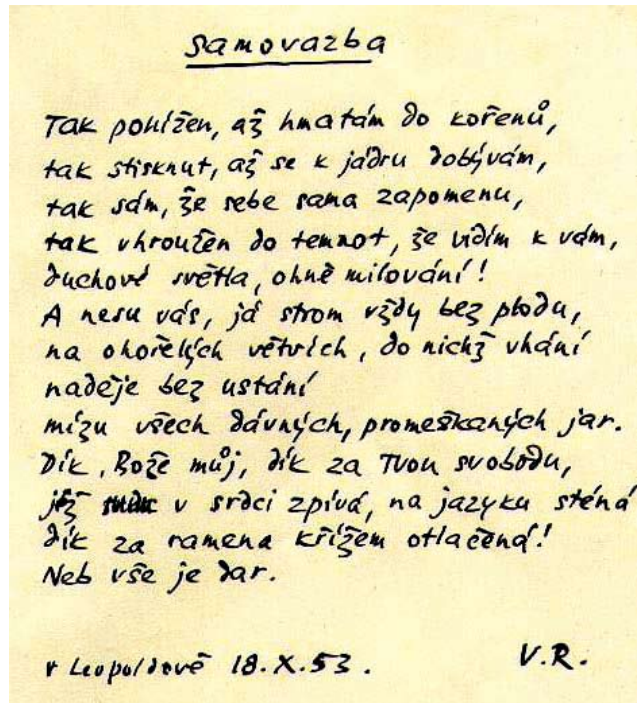 samovazba
Tak ponížen, až hmatám do kořenů,
tak stisknut, až se k jádru dobývám,
tak sám, že sebe sama zapomenu,
tak vhroužen do temnot, že vidím k vám,
duchové světla, ohně milování!
A nesu vás, já strom vždy bez plodu,
na ohořelých větvích, do nichž vhání
naděje bez ustání
mízu všech dávných, promeškaných jar.
Dík, Bože můj, dík za Tvou svobodu,
jež v srdci zpívá, na jazyku sténá
dík za ramena křížem otlačená!
Neb vše je dar.
v Leopoldově 18.X.53.
V.R.